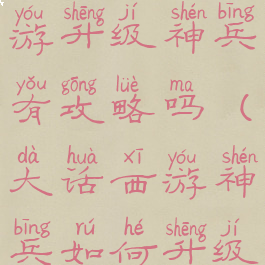 yóu shēng jí shén bīng
游升级神兵
yǒu gōng lüè ma
有攻略吗（
dà huà xī yóu shén
大话西游神
bīng rú hé shēng jí
兵如何升级